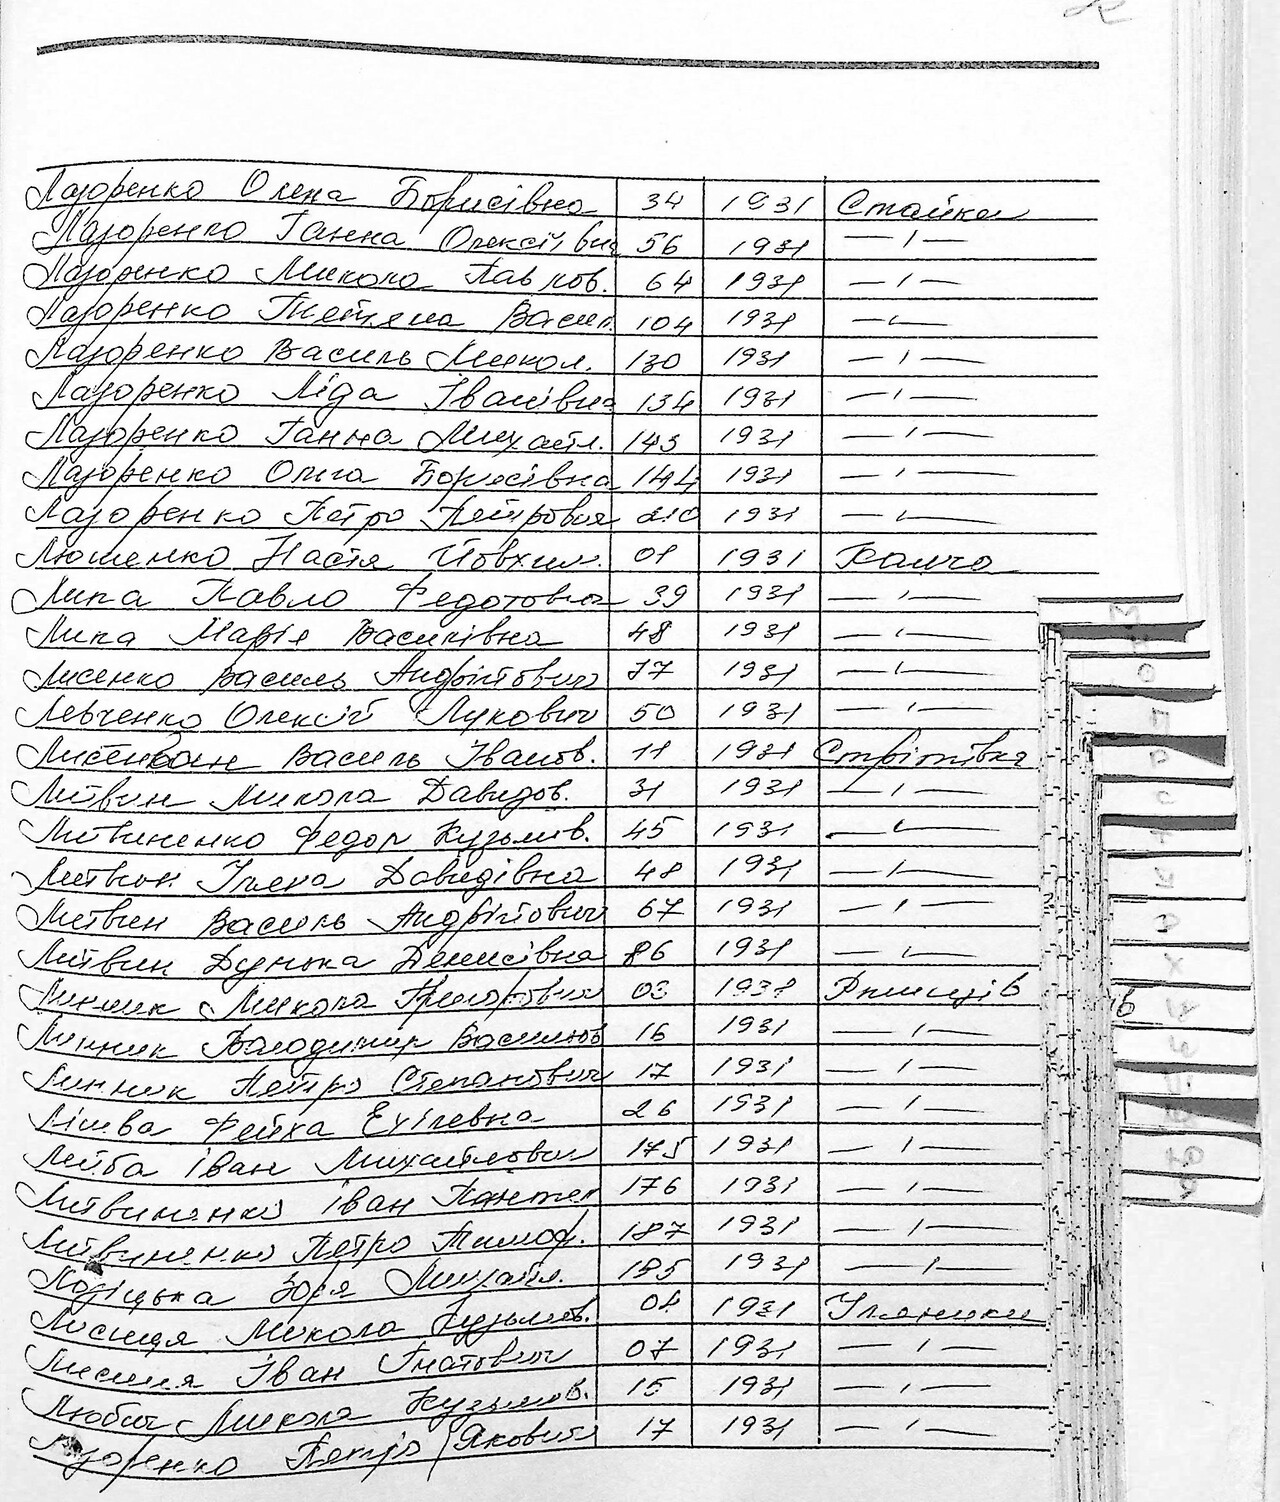 Лазоренко Олена Борисівна 34 1931 Стайки
Лазоренко Ганна Олексіївна 56 1931 —〃—
Лазоренко Микола Павлов. 64 1931 —〃—
Лазоренко Тетяна Васил. 104 1931 —〃—
Лазоренко Василь Микол. 130 1931 —〃—
Лазоренко Ліда Іванівна 134 1931 —〃—
Лазоренко Ганна Михайл. 143 1931 —〃—
Лазоренко Ольга Борисівна 144 1931 —〃—
Лазоренко Петро Петрович 210 1931 —〃—
Люшенко Настя Йовхим. 01 1931
Липа Павло Федотович 39 1931 —〃—
Липа Марія Василівна 48 1931 —〃—
Лисенко Василь Андрійович 77 1931 —〃—
Левченко Олексій Лукович 50 1931 —〃—
Василь Іванов. 11 1931 Стрітівка
Литвин Микола Давидов. 31 1931 —〃—
Литвиненко Федор Кузьмів. 45 1931 —〃—
Литвин Ілена Давидівна 48 1931 —〃—
Литвин Василь Андрійович 67 1931 —〃—
Литвин Дунька Денисівна 86 1931 —〃—
Линник Микола Григорович 03 1931
Линник Володимир Васильов 16 1931 —〃—
Линник Петро Степанович 17 1931 —〃—
Фейха Ехілевна 26 1931 —〃—
Лейба Іван Михайлович 175 1931 —〃—
Литвиненко Іван Пантел 176 1931 —〃—
Литвиненко Петро Тимоф. 187 1931 —〃—
Зоря Михайл. 195 1931 —〃—
Лисиця Микола Кузьмов. 04 1931 Уляники
Лисиця Іван Гнатович 07 1931 —〃—
Любич Микола Кузьмов. 15 1931 —〃—
Лазоренко Петро Якович 17 1931 —〃—